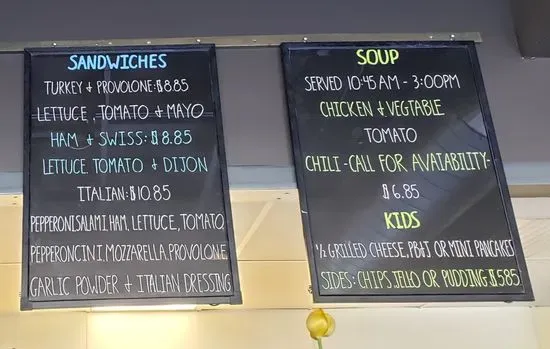 SANDWICHES
TURKEY & PROVOLONE: $8.85
LETTUCE, TOMATO & MAYO
HAM & SWISS: $8.85
LETTUCE. TOMATO & DIJON
ITALIAN: $10.85
PEPPERONI.SALAMI.HAM. LETTUCE, TOMATO,
PEPPERONCINI. MOZZARELLA. PROVOLONE.
GARLIC POWDER & ITALIAN DRESSING
SOUP
SERVED 10:45 AM - 3:00PM
CHICKEN & VEGTABLE
TOMATO
CHILI - CALL FOR AVAIABILITY -
$6.85
KIDS
½ GRILLED CHEESE, PB&J OR MINI PANCAKES
SIDES: CHIPS, JELLO OR PUDDING $5.85